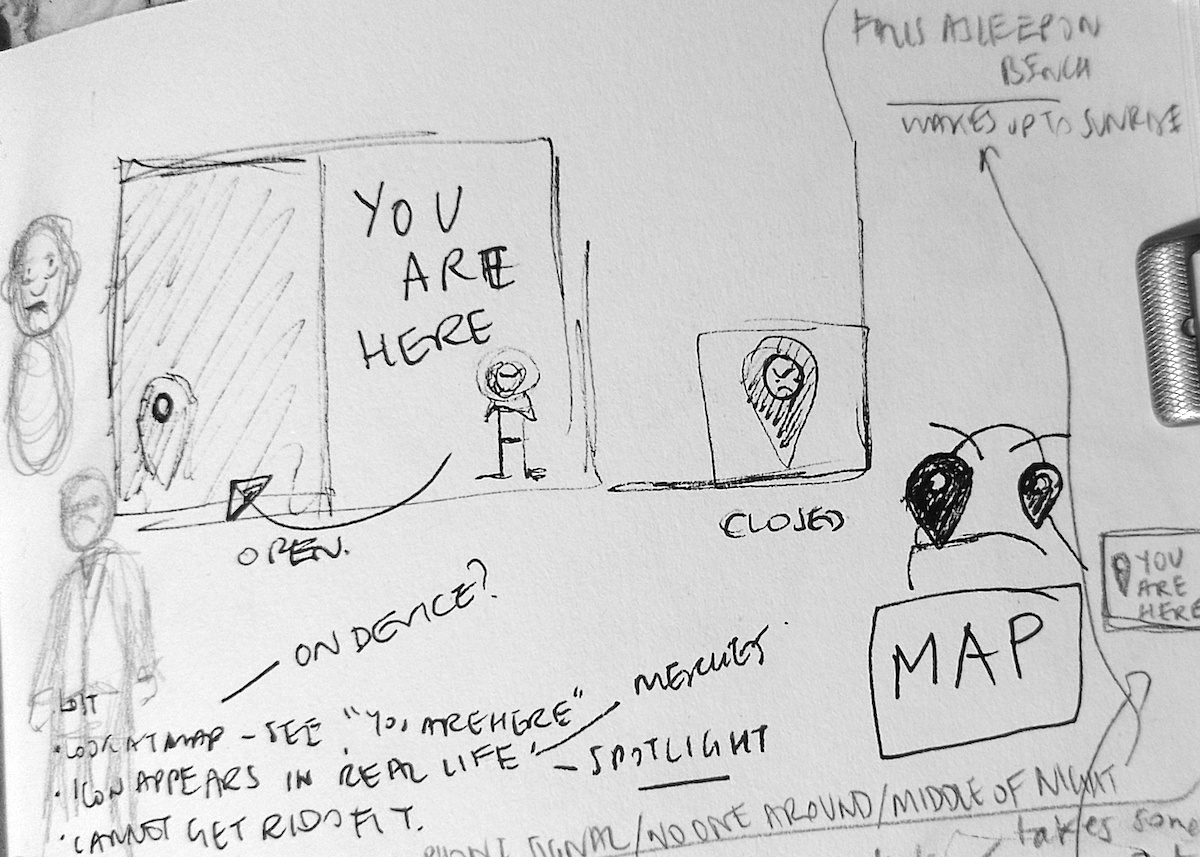 FALLS ASLEEP ON
BENCH
WAKES UP TO SUNRISE
YOU
ARE
HERE
OPEN.
CLOSED
YOU
ARE
HERE
MAP
ON DEVICE?
LOST
• LOOK AT MAP - SEE "YOU ARE HERE"
• ICON APPEARS IN REAL LIFE
- SPOTLIGHT
• CANNOT GET RID OF IT.
SIGNAL/NO ONE AROUND/MIDDLE OF NIGHT
takes